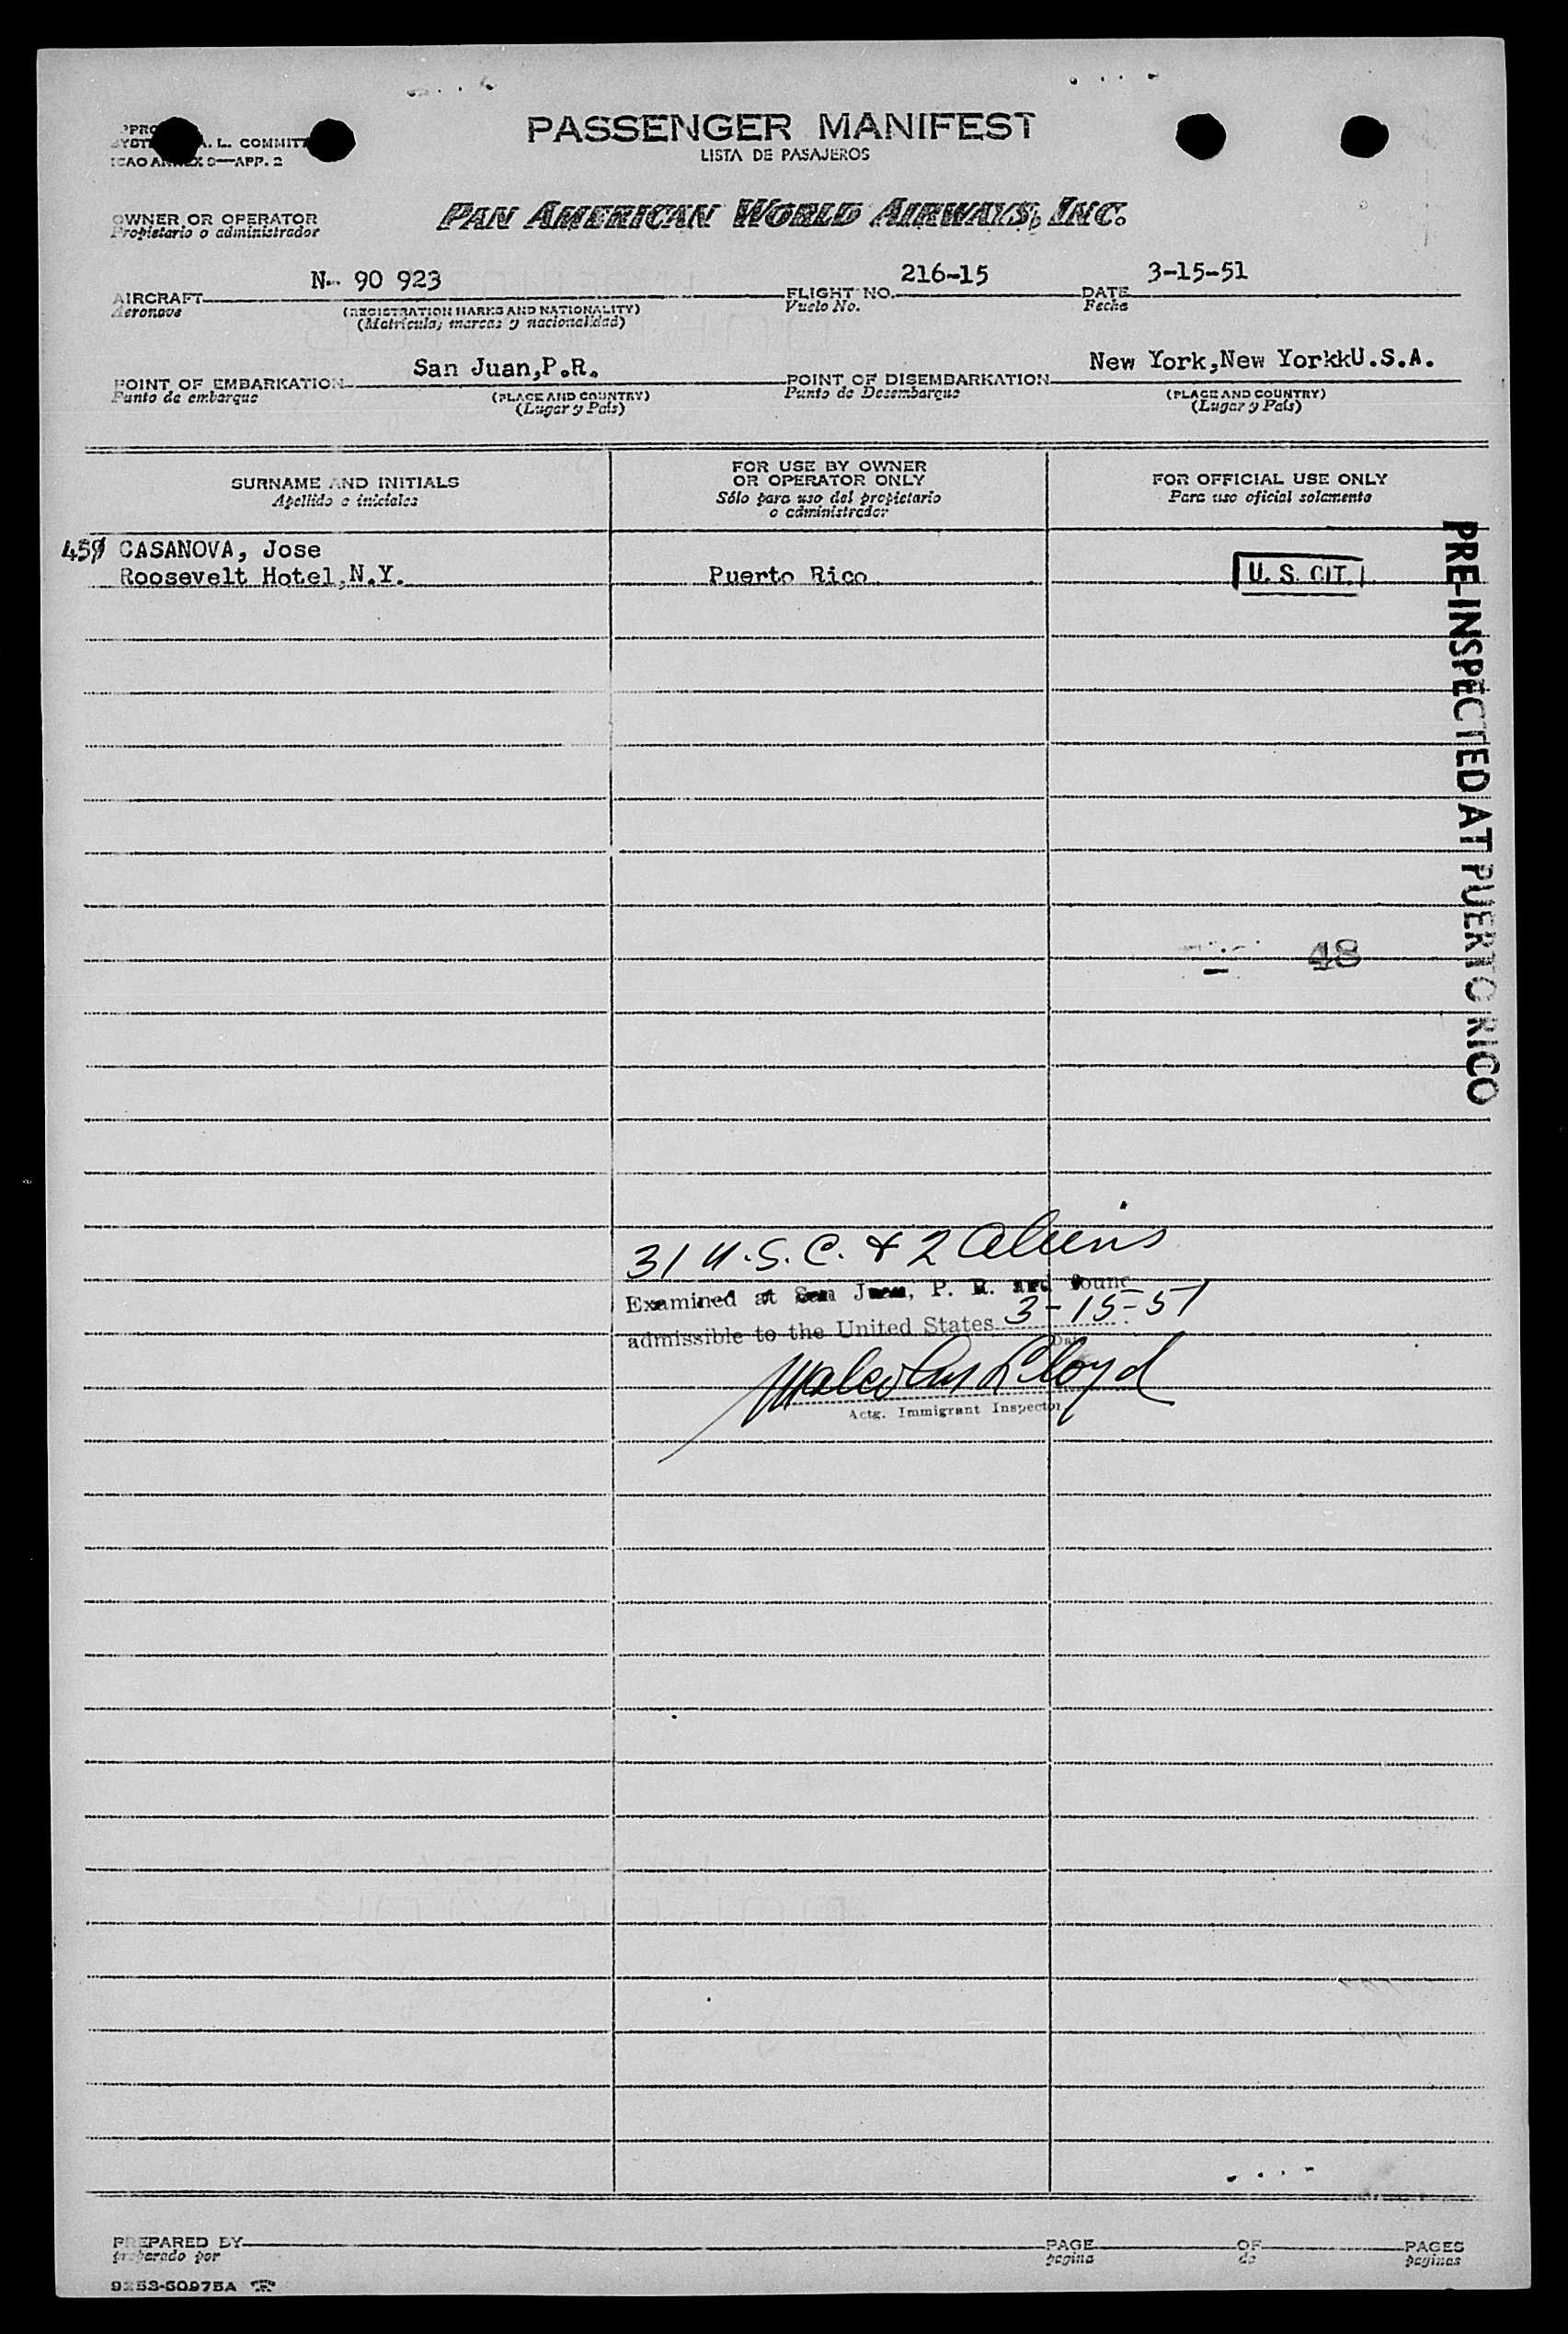 PASSENGER MANIFEST
LISTA DE PASAJEROS
A. L. COMMITT
ICAO ANNEX 9—APP. 2
OWNER OR OPERATOR
Propietario o administrador
PAN AMERICAN WORLD AIRWAYS, INC.
AIRCRAFT N- 90 923 FLIGHT NO. 216-15 DATE 3-15-51
Aeronave (REGISTRATION MARKS AND NATIONALITY) Vuelo No. Fecha
(Matrícula, marcas y nacionalidad)
POINT OF EMBARKATION San Juan,P.R. POINT OF DISEMBARKATION New York,New YorkkU.S.A.
Punto de embarque (PLACE AND COUNTRY) Punto de Desembarque (PLACE AND COUNTRY)
(Lugar y País) (Lugar y País)
SURNAME AND INITIALS FOR USE BY OWNER OR OPERATOR ONLY FOR OFFICIAL USE ONLY
Apellido e iniciales Sólo para uso del propietario o administrador Para uso oficial solamente
CASANOVA, Jose
Roosevelt Hotel,N.Y. Puerto Rico U. S. CIT.
PRE-INSPECTED AT PUERTO RICO
48
31 U.S.C. & 2 Aliens
Examined at San Juan, P. R. and found
admissible to the United States 3-15-51
Date
Malcolm Lloyd
Actg. Immigrant Inspector
PREPARED BY PAGE OF PAGES
preparado por página de páginas